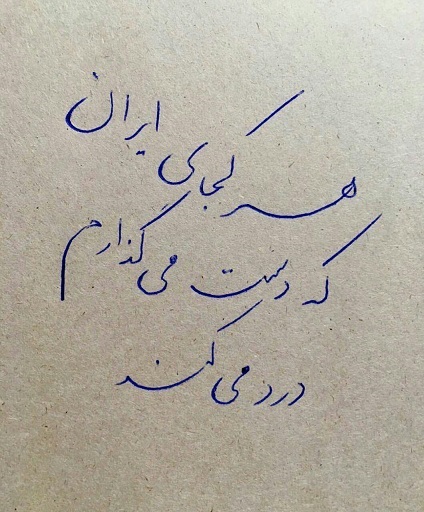 هر کجای ایران
که دست می گذارم
درد می کند